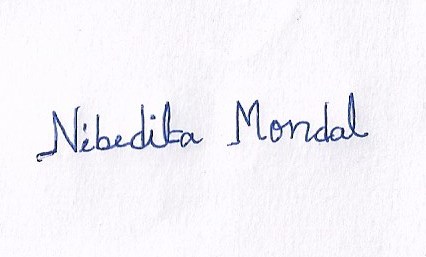 Nibedita Mondal